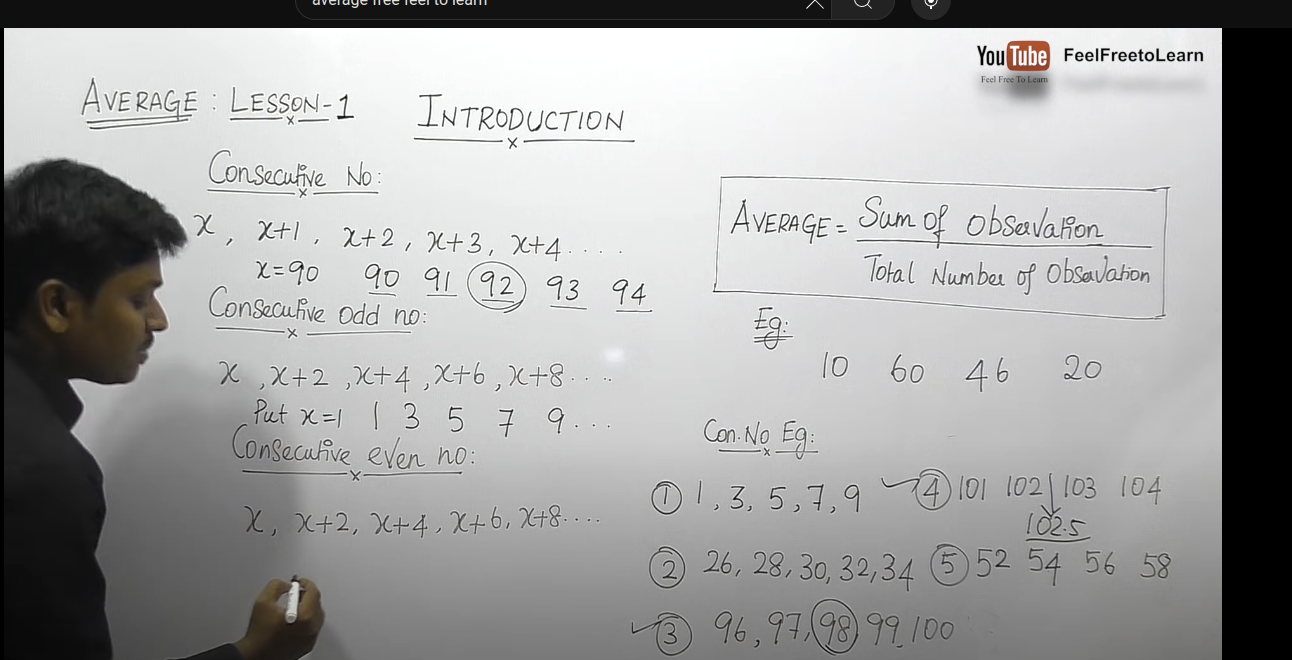 average free feel to learn
YouTube FeelFreetoLearn
Feel Free To Learn
AVERAGE : LESSON-1 INTRODUCTION
Consecutive No:
x, x+1, x+2, x+3, x+4....
x=90 90 91 92 93 94
Consecutive odd no:
x, x+2, x+4, x+6, x+8....
Put x=1 1 3 5 7 9...
Consecutive even no:
x, x+2, x+4, x+6, x+8....
AVERAGE = Sum of Observation
Total Number of Observation
Eg:
10 60 46 20
Con.No Eg:
① 1, 3, 5, 7, 9
② 26, 28, 30, 32, 34
✓③ 96, 97, 98, 99, 100
✓④ 101 102 103 104
102.5
⑤ 52 54 56 58